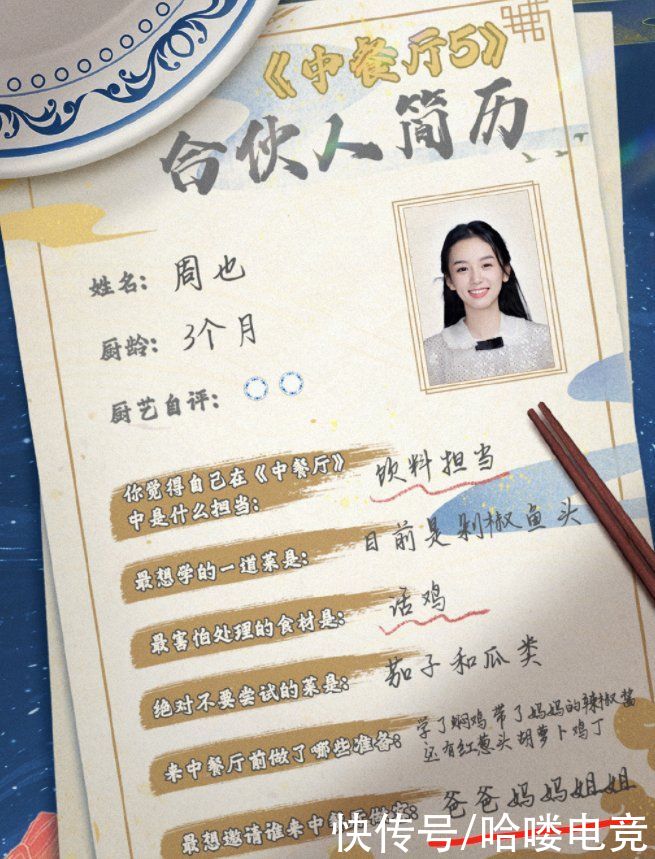 《中餐厅5》
合伙人简历
姓名： 周也
厨龄： 3个月
厨艺自评：
你觉得自己在《中餐厅》
中是什么担当： 饮料担当
最想学的一道菜是： 目前是剁椒鱼头
最害怕处理的食材是： 活鸡
绝对不要尝试的菜是： 茄子和瓜类
来中餐厅前做了哪些准备： 学了焖鸡 带了妈妈的辣椒酱
还有红葱头 胡萝卜鸡丁
最想邀请谁来中餐厅做客： 爸爸妈妈姐姐
快传号/哈喽电竞